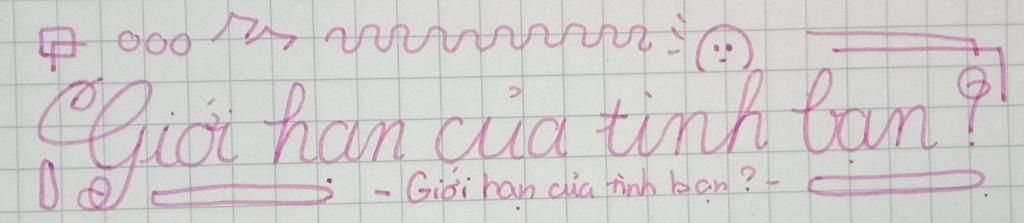 Giới hạn của tình bạn?
- Giới hạn của tình bạn? -